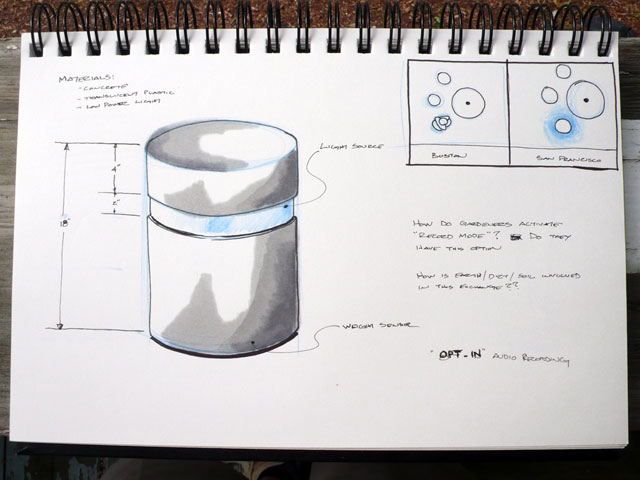 MATERIALS:
- CONCRETE
- TRANSLUCENT PLASTIC
- LOW POWER LIGHT
4"
2"
18"
LIGHT SOURCE
WEIGHT SENSOR
BOSTON
SAN FRANCISCO
HOW DO GARDENERS ACTIVATE
"RECORD MODE"? DO THEY
HAVE THIS OPTION
HOW IS EARTH/DIRT/SOIL INVOLVED
IN THIS EXCHANGE??
"OPT-IN" AUDIO RECORDING